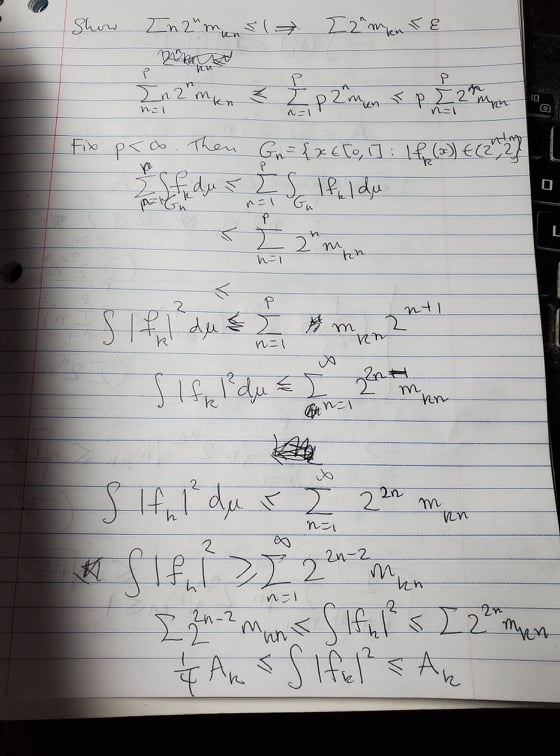 Show Σn2ⁿm_kn ≤ 1 ⇒ Σ2ⁿm_kn ≤ ε
Σ_{n=1}^{p} n2ⁿm_kn ≤ Σ_{n=1}^{p} p2ⁿm_kn ≤ p Σ_{n=1}^{p} 2ⁿm_kn
Fix p<∞. Then G_n = {x∈[0,1] : |f_k(x)| ∈ (2^{n-1}, 2ⁿ]}
Σ ∫_{G_n} f_k dμ ≤ Σ_{n=1}^{p} ∫_{G_n} |f_k| dμ
≤ Σ_{n=1}^{p} 2ⁿ m_kn
≤
∫ |f_k|² dμ ≤ Σ_{n=1}^{p} m_kn 2^{n+1}
∫ |f_k|² dμ ≤ Σ_{n=1}^{∞} 2^{2n} m_kn
∫ |f_k|² dμ ≤ Σ_{n=1}^{∞} 2^{2n} m_kn
∫ |f_k|² ≥ Σ_{n=1}^{∞} 2^{2n-2} m_kn
Σ 2^{2n-2} m_kn ≤ ∫ |f_k|² ≤ Σ 2^{2n} m_kn
¼ A_k ≤ ∫ |f_k|² ≤ A_k